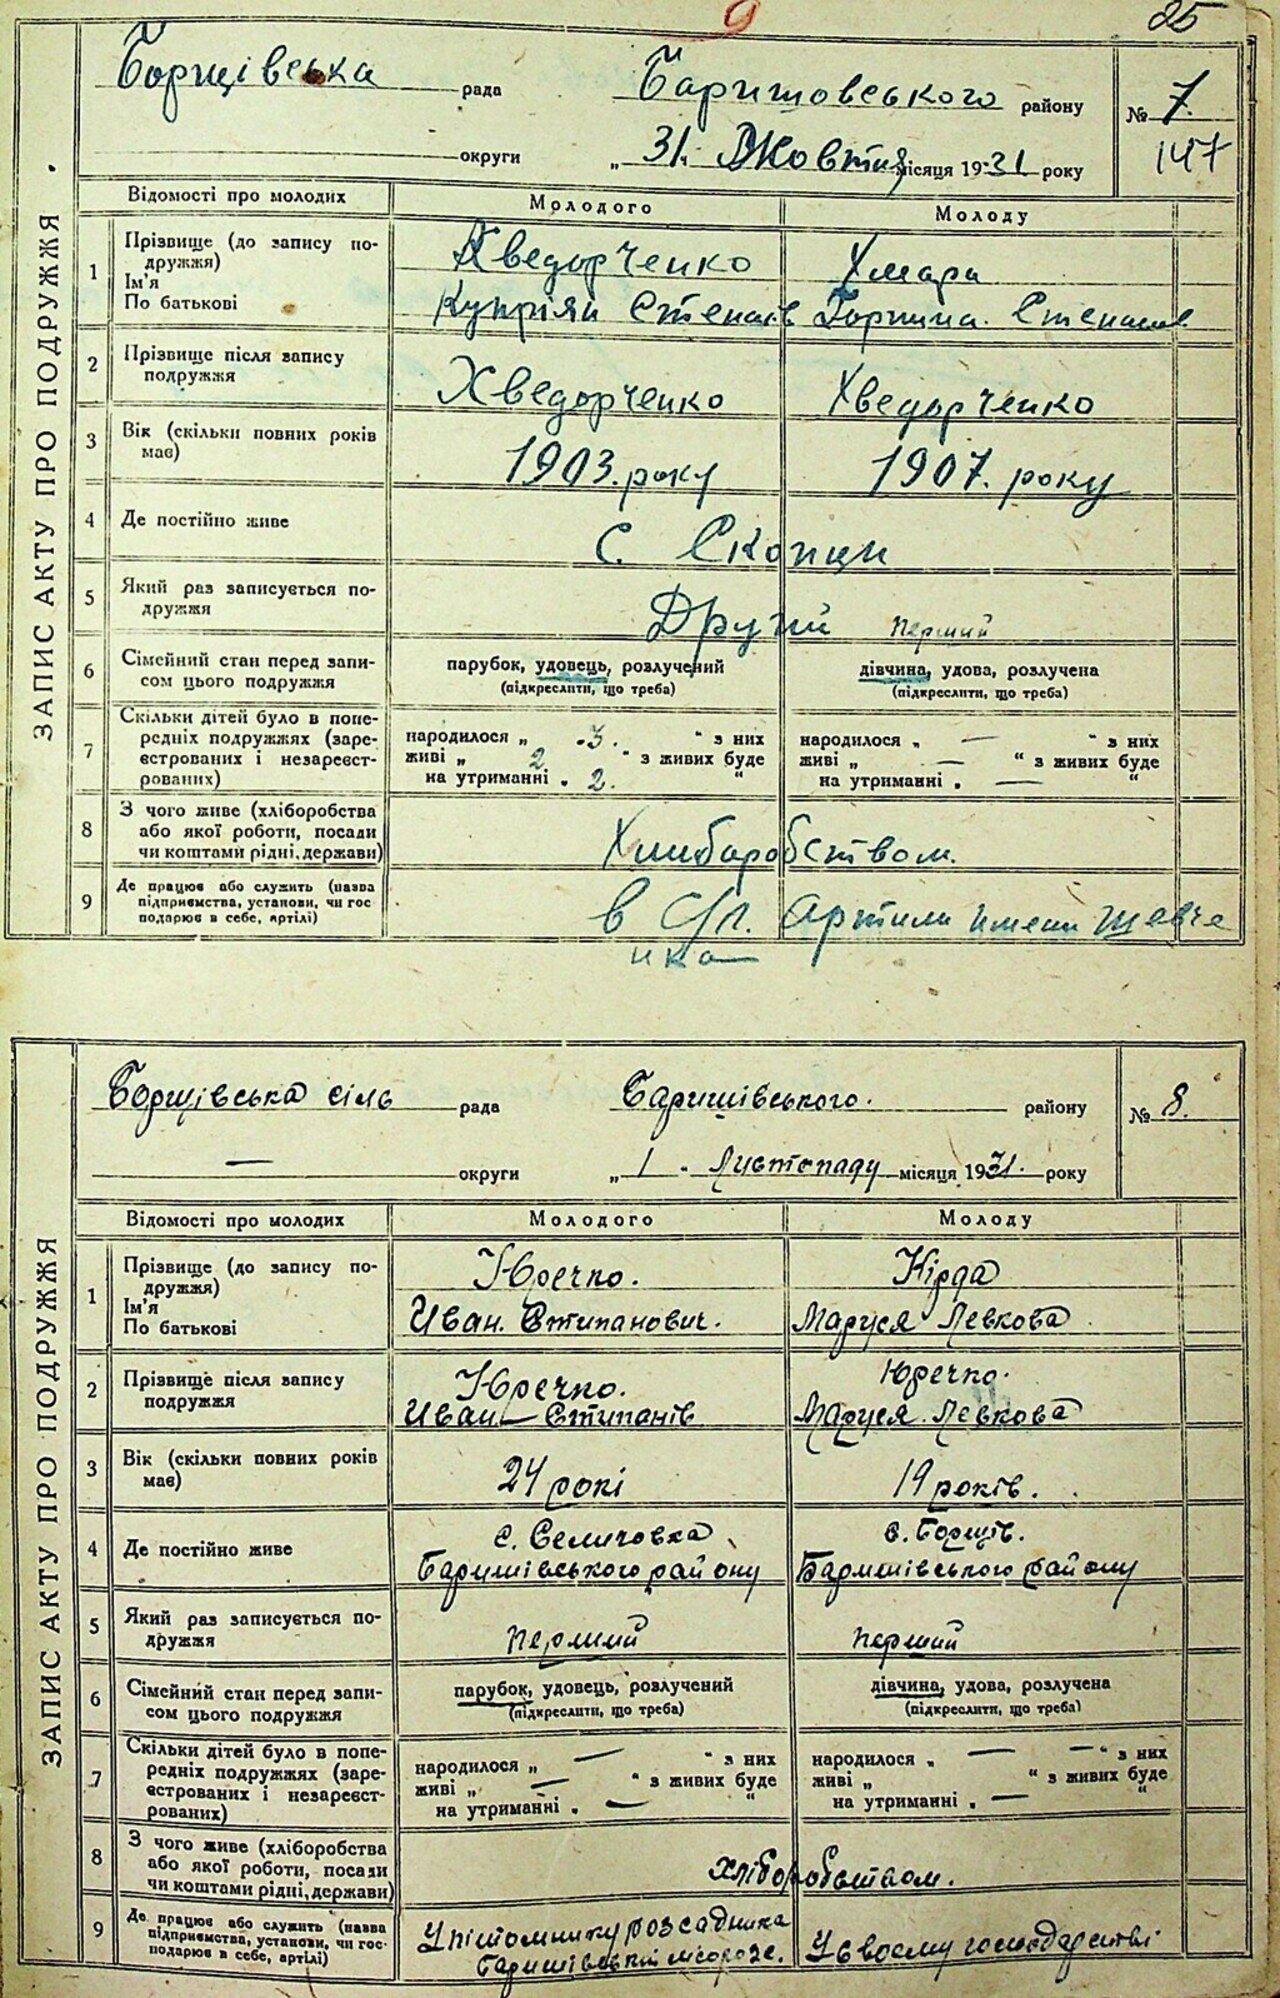 9
25
ЗАПИС АКТУ ПРО ПОДРУЖЖЯ
Борщівська рада Баришовського району № 7.
округи „ 31 „ Жовтня місяця 1931 року 147
Відомості про молодих Молодого Молоду
1 Прізвище (до запису по-
дружжя)
Ім'я
По батькові
Хведорченко Хмара
Купріян Степанів Горпина. Степанов
2 Прізвище після запису
подружжя
Хведорченко Хведорченко
3 Вік (скільки повних років
має)
1903. року 1907. року
4 Де постійно живе с. Скопци
5 Який раз записується по-
дружжя
Другий перший
6 Сімейний стан перед запи-
сом цього подружжя
парубок, удовець, розлучений дівчина, удова, розлучена
(підкреслити, що треба) (підкреслити, що треба)
7 Скільки дітей було в попе-
редніх подружжях (заре-
єстрованих і незареєст-
рованих)
народилося „ 3. “ з них народилося „ — “ з них
живі „ 2 “ з живих буде живі „ — “ з живих буде
на утриманні „ 2. “ на утриманні „ — “
8 З чого живе (хліборобства
або якої роботи, посади
чи коштами рідні, держави)
Хлибаробством.
9 Де працює або служить (назва
підприємства, установи, чи гос
подарює в себе, артілі)
в С/г. Артили имени Шевче
нка
ЗАПИС АКТУ ПРО ПОДРУЖЖЯ
Борщівська сіль рада Баришівського. району № 8.
— округи „ 1 „ Листопаду місяця 1931. року
Відомості про молодих Молодого Молоду
1 Прізвище (до запису по-
дружжя)
Ім'я
По батькові
Юречко. Кірда
Иван. Стипанович. Маруся Левкова
2 Прізвище після запису
подружжя
Юречко. Юречко.
Иван — Стипанів Маруся. Левкова
3 Вік (скільки повних років
має)
24 рокі 19 років.
4 Де постійно живе
с. Селичовка с. Борщів.
Баришівського району Баришівського району
5 Який раз записується по-
дружжя
перший перший
6 Сімейний стан перед запи-
сом цього подружжя
парубок, удовець, розлучений дівчина, удова, розлучена
(підкреслити, що треба) (підкреслити, що треба)
7 Скільки дітей було в попе-
редніх подружжях (заре-
єстрованих і незареєст-
рованих)
народилося „ — “ з них народилося „ — — “ з них
живі „ — “ з живих буде живі „ “ з живих буде
на утриманні „ — “ на утриманні „ — “
8 З чого живе (хліборобства
або якої роботи, посади
чи коштами рідні, держави)
хліборобством.
9 Де працює або служить (назва
підприємства, установи, чи гос-
подарює в себе, артілі)
У пітомнику розсадника У своєму господарстві